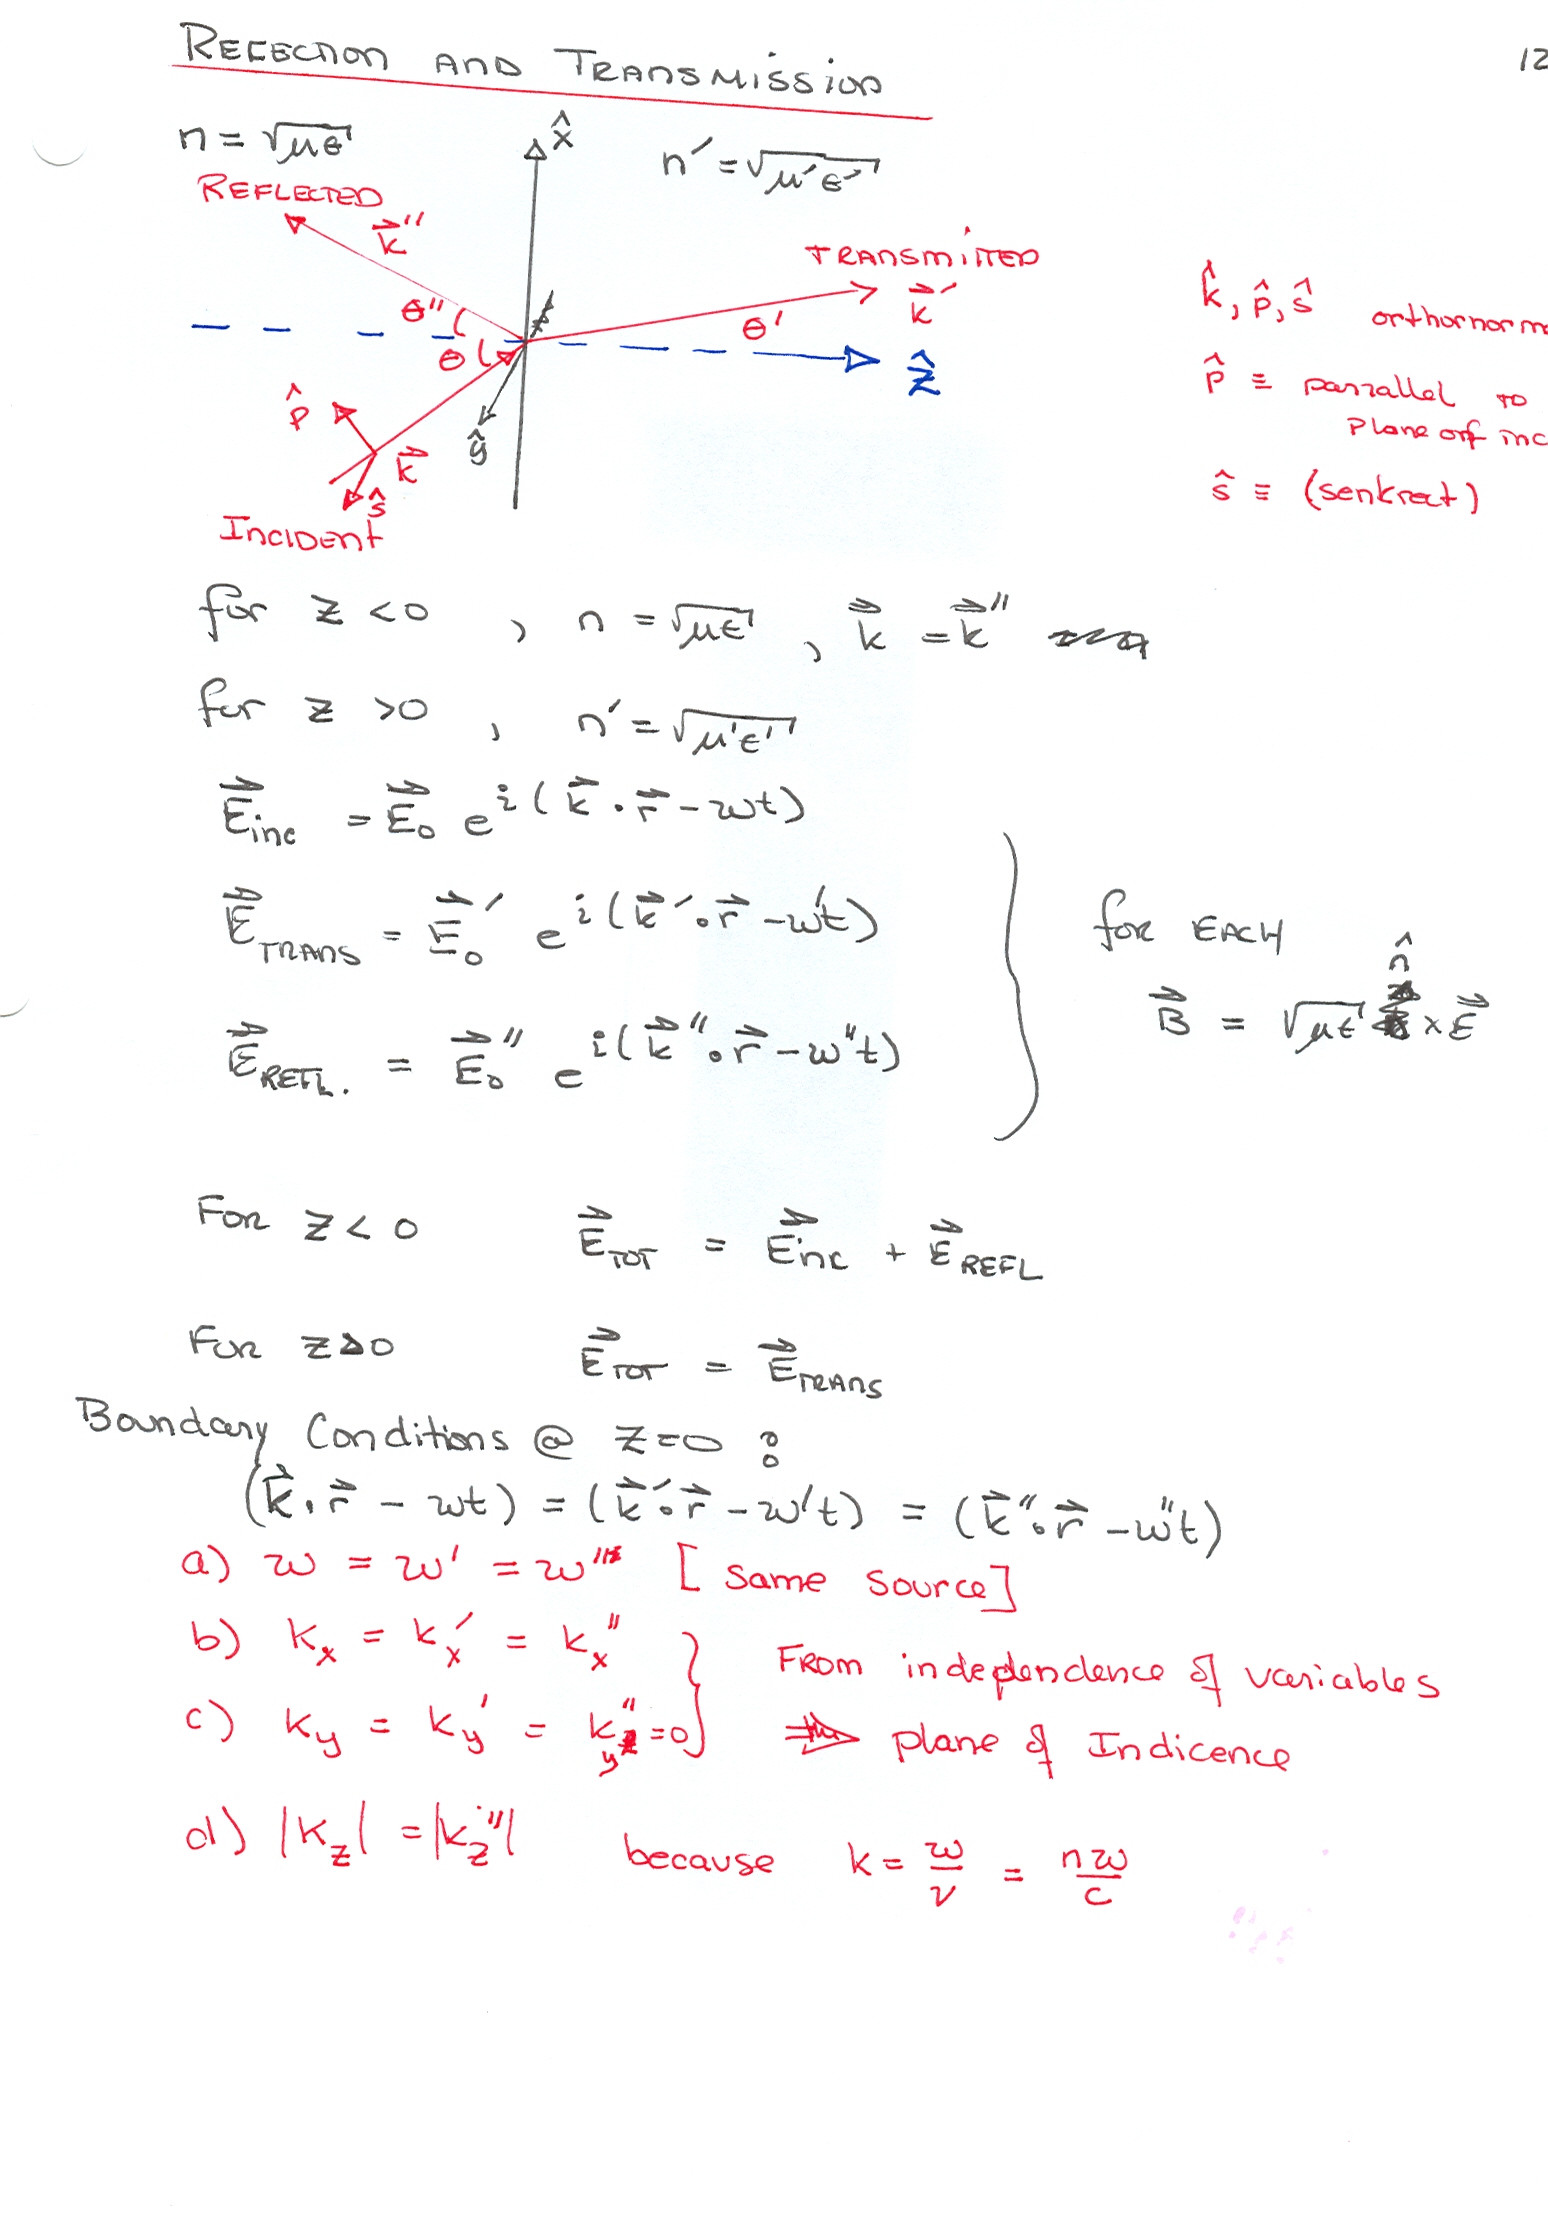 REFECTION AND TRANSMISSION
12
n = √με
x̂
n′ = √μ′ε′
REFLECTED
k⃗″
TRANSMITTED
k⃗′
θ″
θ′
θ
ẑ
p̂
ŷ
k⃗
ŝ
INCIDENT
k̂, p̂, ŝ orthornorm
p̂ ≡ parrallel to
plane orf inc
ŝ ≡ (senkrect)
for z <0 , n = √με , k⃗ = k⃗″
for z >0 , n′ = √μ′ε′
E⃗inc = E⃗₀ e^i(k⃗ · r⃗ - ωt)
E⃗TRANS = E⃗₀′ e^i(k⃗′ · r⃗ - ω′t)
E⃗REFL. = E⃗₀″ e^i(k⃗″ · r⃗ - ω″t)
for EACH
B⃗ = √με n̂ × E⃗
For z < 0 E⃗TOT = E⃗inc + E⃗REFL
For z > 0 E⃗TOT = E⃗TRANS
Boundary Conditions @ z=0 :
(k⃗ · r⃗ - ωt) = (k⃗′ · r⃗ - ω′t) = (k⃗″ · r⃗ - ω″t)
a) ω = ω′ = ω″ [same source]
b) kx = kx′ = kx″
FROM independence of variables
c) ky = ky′ = ky″ =0
⇒ plane of Indicence
d) |kz| = |kz″| because k = ω/v = nω/c